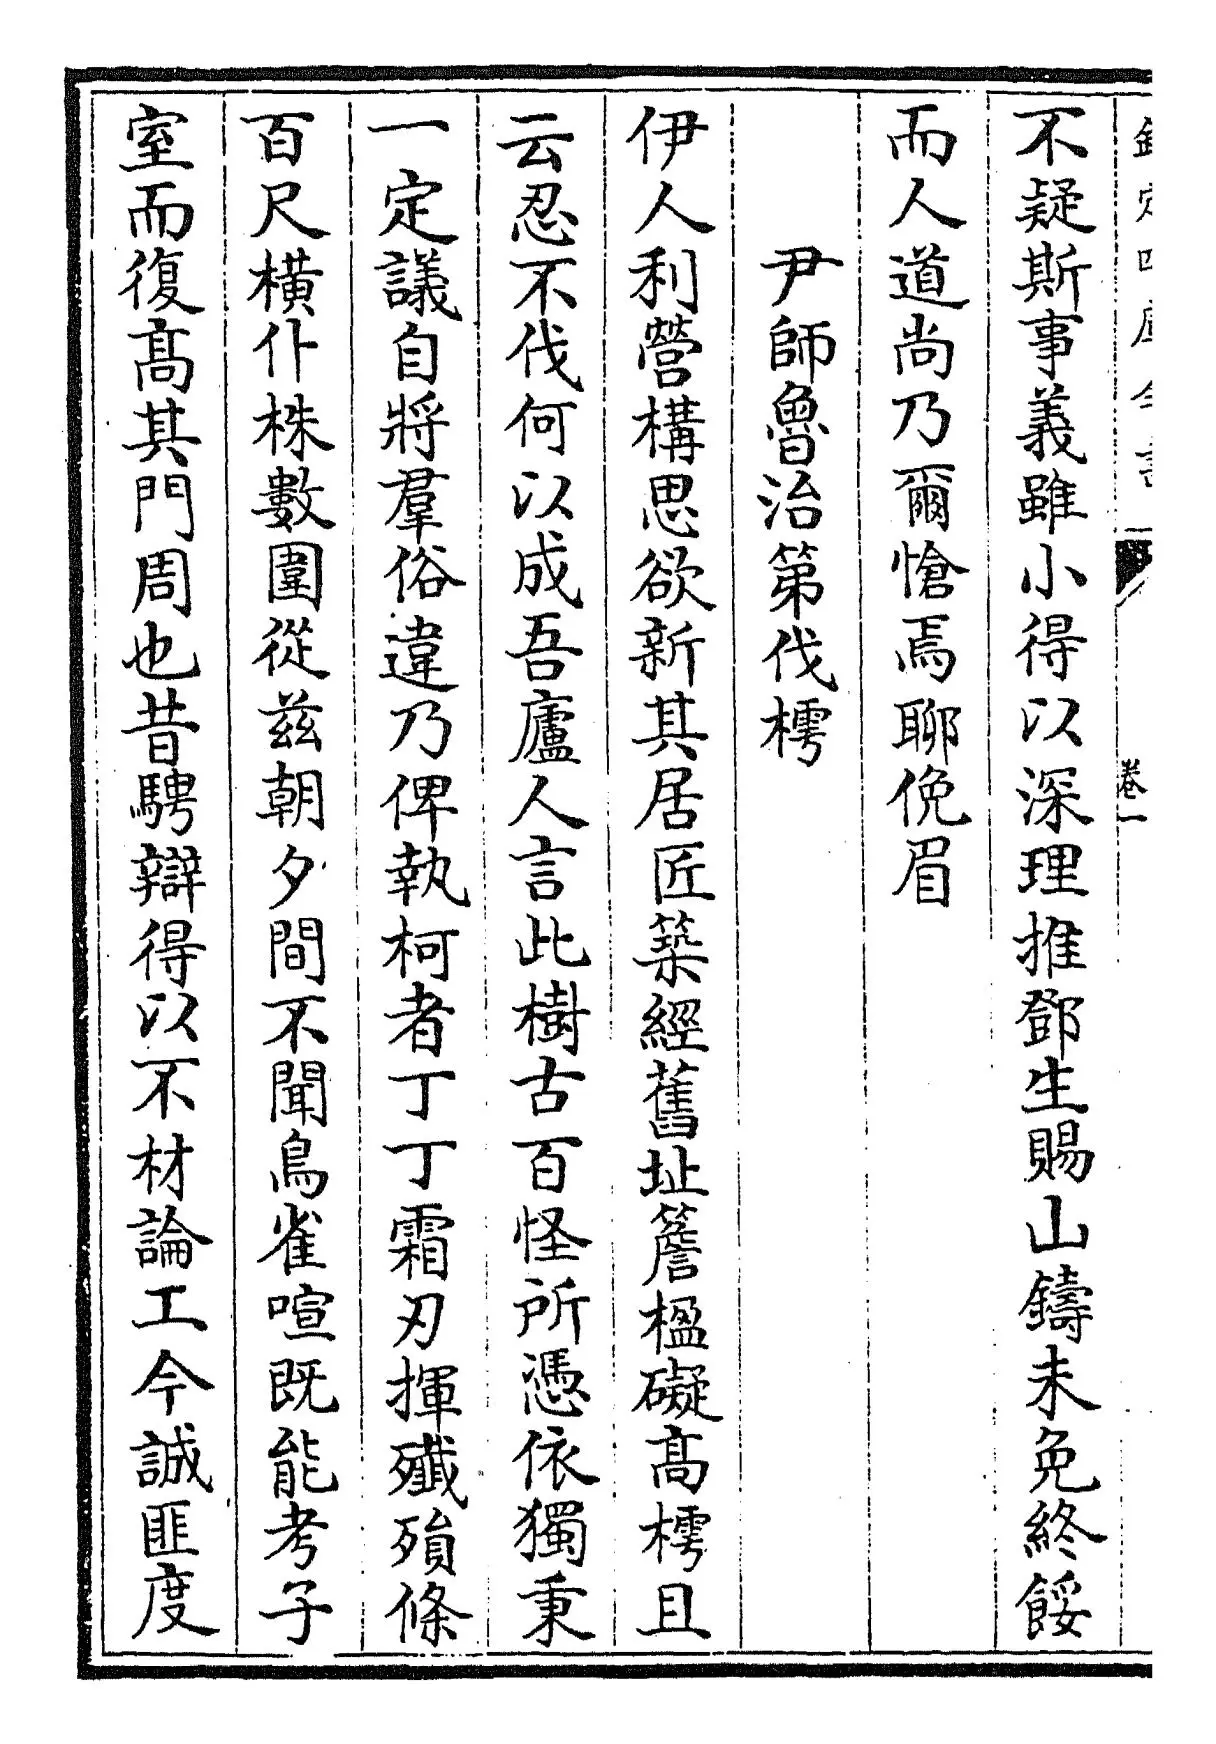 卷一
不疑斯事義雖小得以深理推鄧生賜山鑄未免終餒
而人道尚乃爾愴焉聊俛眉
尹師魯治第伐樗
伊人利營構思欲新其居匠築經舊址簷楹礙髙樗且
云忍不伐何以成吾廬人言此樹古百怪所憑依獨秉
一定議自將羣俗違乃俾執柯者丁丁霜刃揮殲殞條
百尺橫仆株數圍從兹朝夕間不聞鳥雀喧既能考子
室而復髙其門周也昔騁辯得以不材論工今誠匪度